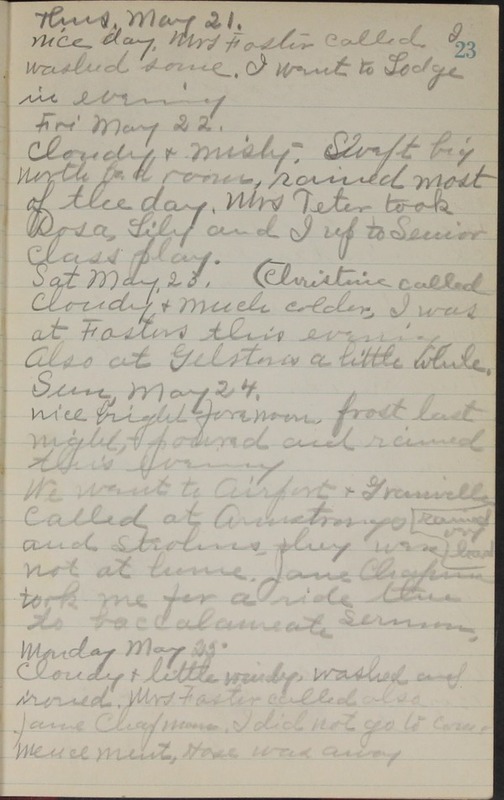 Thus. May 21.
nice day, Mrs Foster called I
23
washed some. I went to Lodge
in evening
Fri May 22.
Cloudy & misty. Swept big
north bed room, rained most
of the day. Mrs Teter took
Rosa, Lily and I up to Senior
Class play.
Sat May, 23. (Christine called
Cloudy & much colder, I was
at Fosters this evening
Also at Gelstons a little while.
Sun, May 24.
nice bright forenoon, frost last
night, poured and rained
this evening
We went to Airport & Granville
Called at Armstrongs
and they were
not at home. Jane Chapman
took me for a ride then
to baccalaureate Sermon,
Monday May 25.
Cloudy & little windy. washed and
ironed. Mrs Foster called also
Jane Chapman. I did not go to Com-
mencement, Rose was away